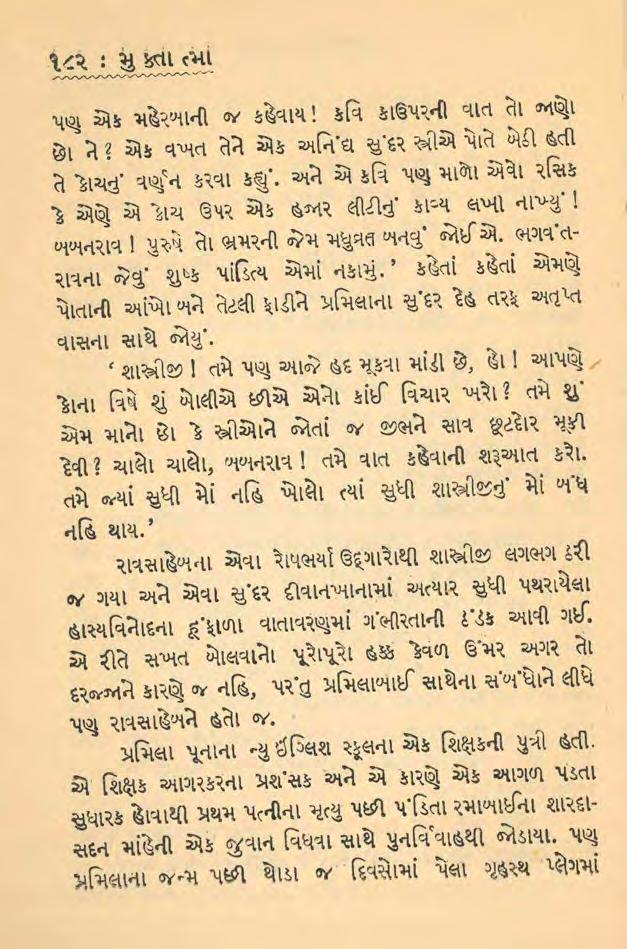 ૧૮૨ : મુક્તાત્મા
પણ એક મહેરબાની જ કહેવાય! કવિ કાઉપરની વાત તો જાણો
છો ને? એક વખત તેને એક અનિંદ્ય સુંદર સ્ત્રીએ પોતે બેઠી હતી
તે કોચનું વર્ણન કરવા કહ્યું. અને એ કવિ પણ માળો એવો રસિક
કે એણે એ કોચ ઉપર એક હજાર લીટીનું કાવ્ય લખી નાખ્યું!
બબનરાવ! પુરુષે તો ભ્રમરની જેમ મધુવ્રત બનવું જોઈએ. ભગવંત-
રાવના જેવું શુષ્ક પાંડિત્ય એમાં નકામું.’ કહેતાં કહેતાં એમણે
પોતાની આંખો બને તેટલી ફાડીને પ્રમિલાના સુંદર દેહ તરફ અતૃપ્ત
વાસના સાથે જોયું.
‘શાસ્ત્રીજી! તમે પણ આજે હદ મૂકવા માંડી છે, હો! આપણે
કોના વિષે શું બોલીએ છીએ એનો કાંઈ વિચાર ખરો? તમે શું
એમ માનો છો કે સ્ત્રીઓને જોતાં જ જીભને સાવ છૂટદોર મૂકી
દેવી? ચાલો ચાલો, બબનરાવ! તમે વાત કહેવાની શરૂઆત કરો.
તમે જ્યાં સુધી મોં નહિ ખોલો ત્યાં સુધી શાસ્ત્રીજીનું મોં બંધ
નહિ થાય.’
રાવસાહેબના એવા રોષભર્યા ઉદ્ગારોથી શાસ્ત્રીજી લગભગ ઠરી
જ ગયા અને એવા સુંદર દીવાનખાનામાં અત્યાર સુધી પથરાયેલા
હાસ્યવિનોદના હૂંફાળા વાતાવરણમાં ગંભીરતાની ઠંડક આવી ગઈ.
એ રીતે સખત બોલવાનો પૂરોપૂરો હક્ક કેવળ ઉંમર અગર તો
દરજ્જાને કારણે જ નહિ, પરંતુ પ્રમિલાબાઈ સાથેના સંબંધોને લીધે
પણ રાવસાહેબને હતો જ.
પ્રમિલા પૂનાના ન્યુ ઈંગ્લિશ સ્કૂલના એક શિક્ષકની પુત્રી હતી.
એ શિક્ષક આગરકરના પ્રશંસક અને એ કારણે એક આગળ પડતા
સુધારક હોવાથી પ્રથમ પત્નીના મૃત્યુ પછી પંડિતા રમાબાઈના શારદા-
સદન માંહેની એક જુવાન વિધવા સાથે પુનર્વિવાહથી જોડાયા. પણ
પ્રમિલાના જન્મ પછી થોડા જ દિવસોમાં પેલા ગૃહસ્થ પ્લેગમાં